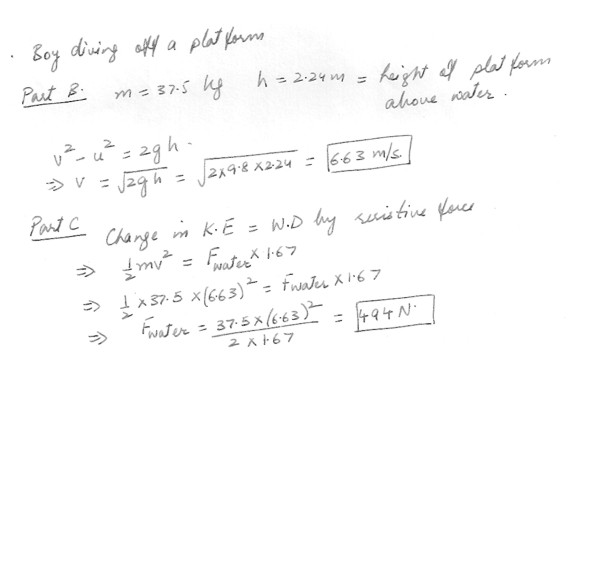 . Boy diving off a platform
Part B. m = 37.5 kg h = 2.24 m = height of platform
above water.
v² - u² = 2gh.
⇒ v = √2gh = √2×9.8×2.24 = 6.63 m/s.
Part C Change in K.E = W.D by resistive force
⇒ 1/2 mv² = Fwater × 1.67
⇒ 1/2 × 37.5 × (6.63)² = Fwater × 1.67
⇒ Fwater = 37.5 × (6.63)² / 2 × 1.67 = 494 N.